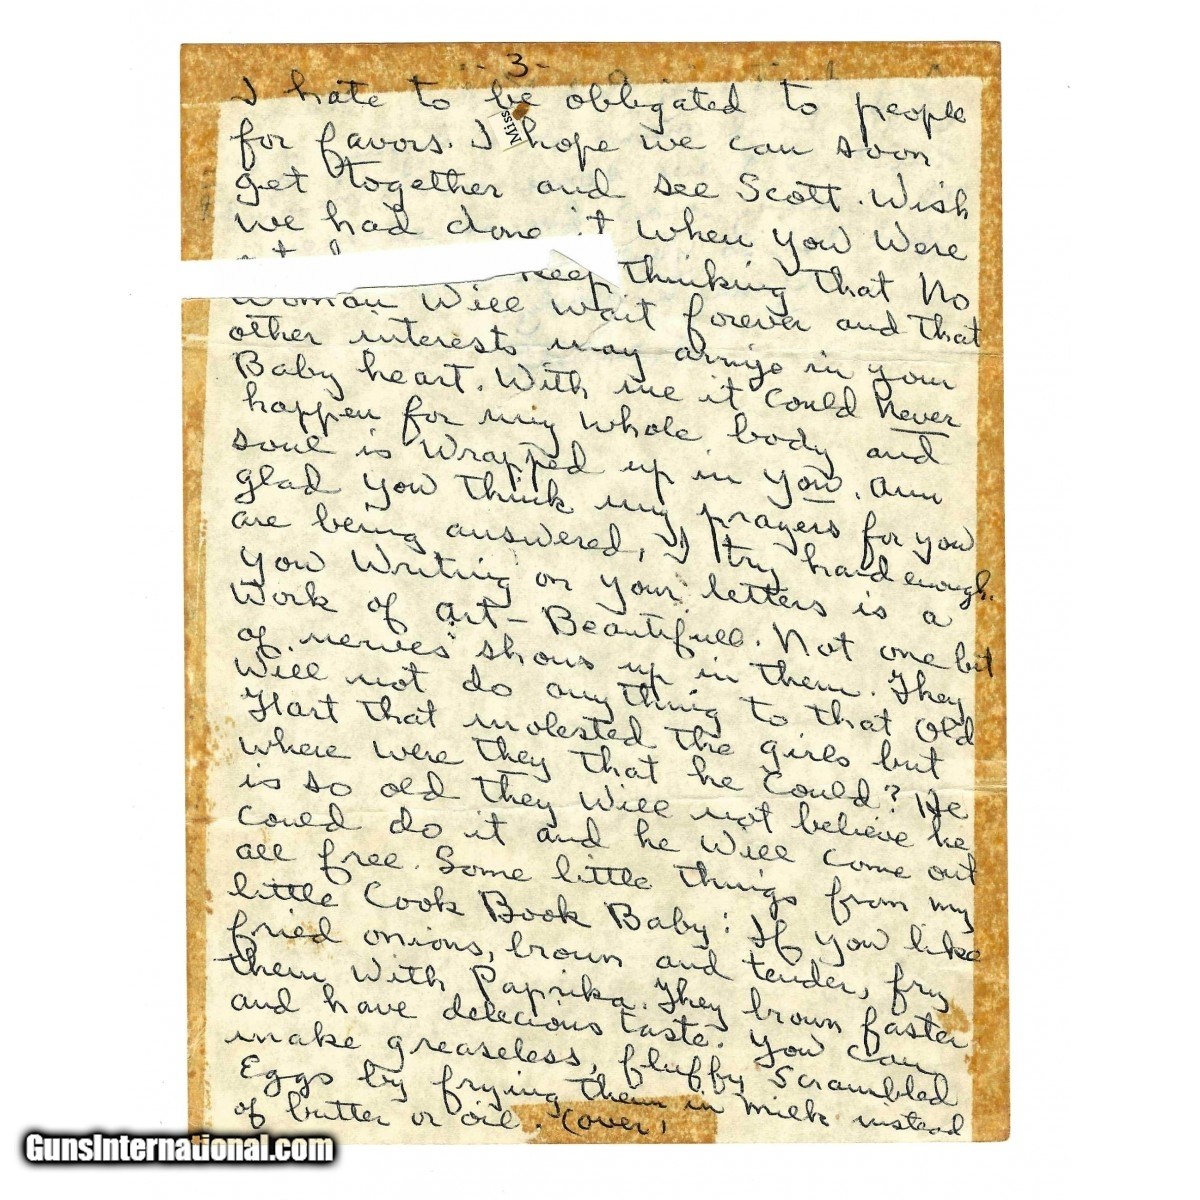 - 3 -
I hate to be obligated to people
Miss
for favors. I hope we can soon
get together and see Scott. Wish
we had done it when you were
keep thinking that No
Woman Will wait forever and that
other interests may arrise in your
Baby heart. With me it could never
happen for my whole body and
soul is wrapped up in you. am
glad you think my prayers for you
are being answered, I try hard enough.
you Writing on your letters is a
Work of art - Beautifull. Not one bit
of nerves shows up in them. They
will not do anything to that old
Hart that molested the girls but
where were they that he could? He
is so old they will not believe he
could do it and he will come out
all free. Some little things from my
little Cook Book Baby: If you like
fried onions, brown and tender, fry
them with Paprika. They brown faster
and have delecious taste. You can
make greaseless, fluffy Scrambled
Eggs by frying them in milk instead
of butter or oil. (over)
GunsInternational.com